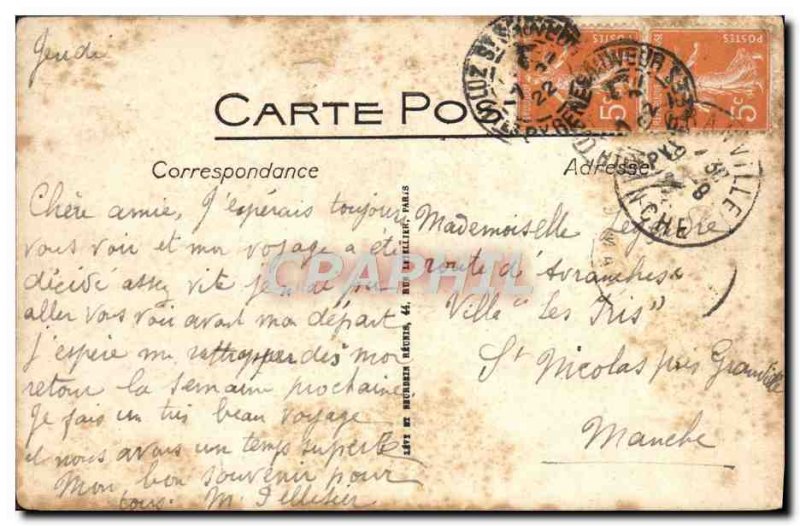 Jeudi
CARTE PO
Correspondance
Adresse
Chère amie, J'espérais toujours
vous voir et mon voyage a été
décidé assez vite je n'ai pu
aller vous voir avant mon départ
J'espère me rattrapper dès mon
retour la semaine prochaine
Je fais un très beau voyage
et nous avons un temps superbe
Mon bon souvenir pour
tous. M. Pelletier
LÉVY ET NEURDEIN RÉUNIS, 44, RUE LETELLIER, PARIS
Mademoiselle
route d'Avranches
Villa "Les Iris"
St Nicolas près Granville
Manche
LUZ ST SAUVEUR
17
22
POSTES
5c
POSTES
5c
CPAPHIL